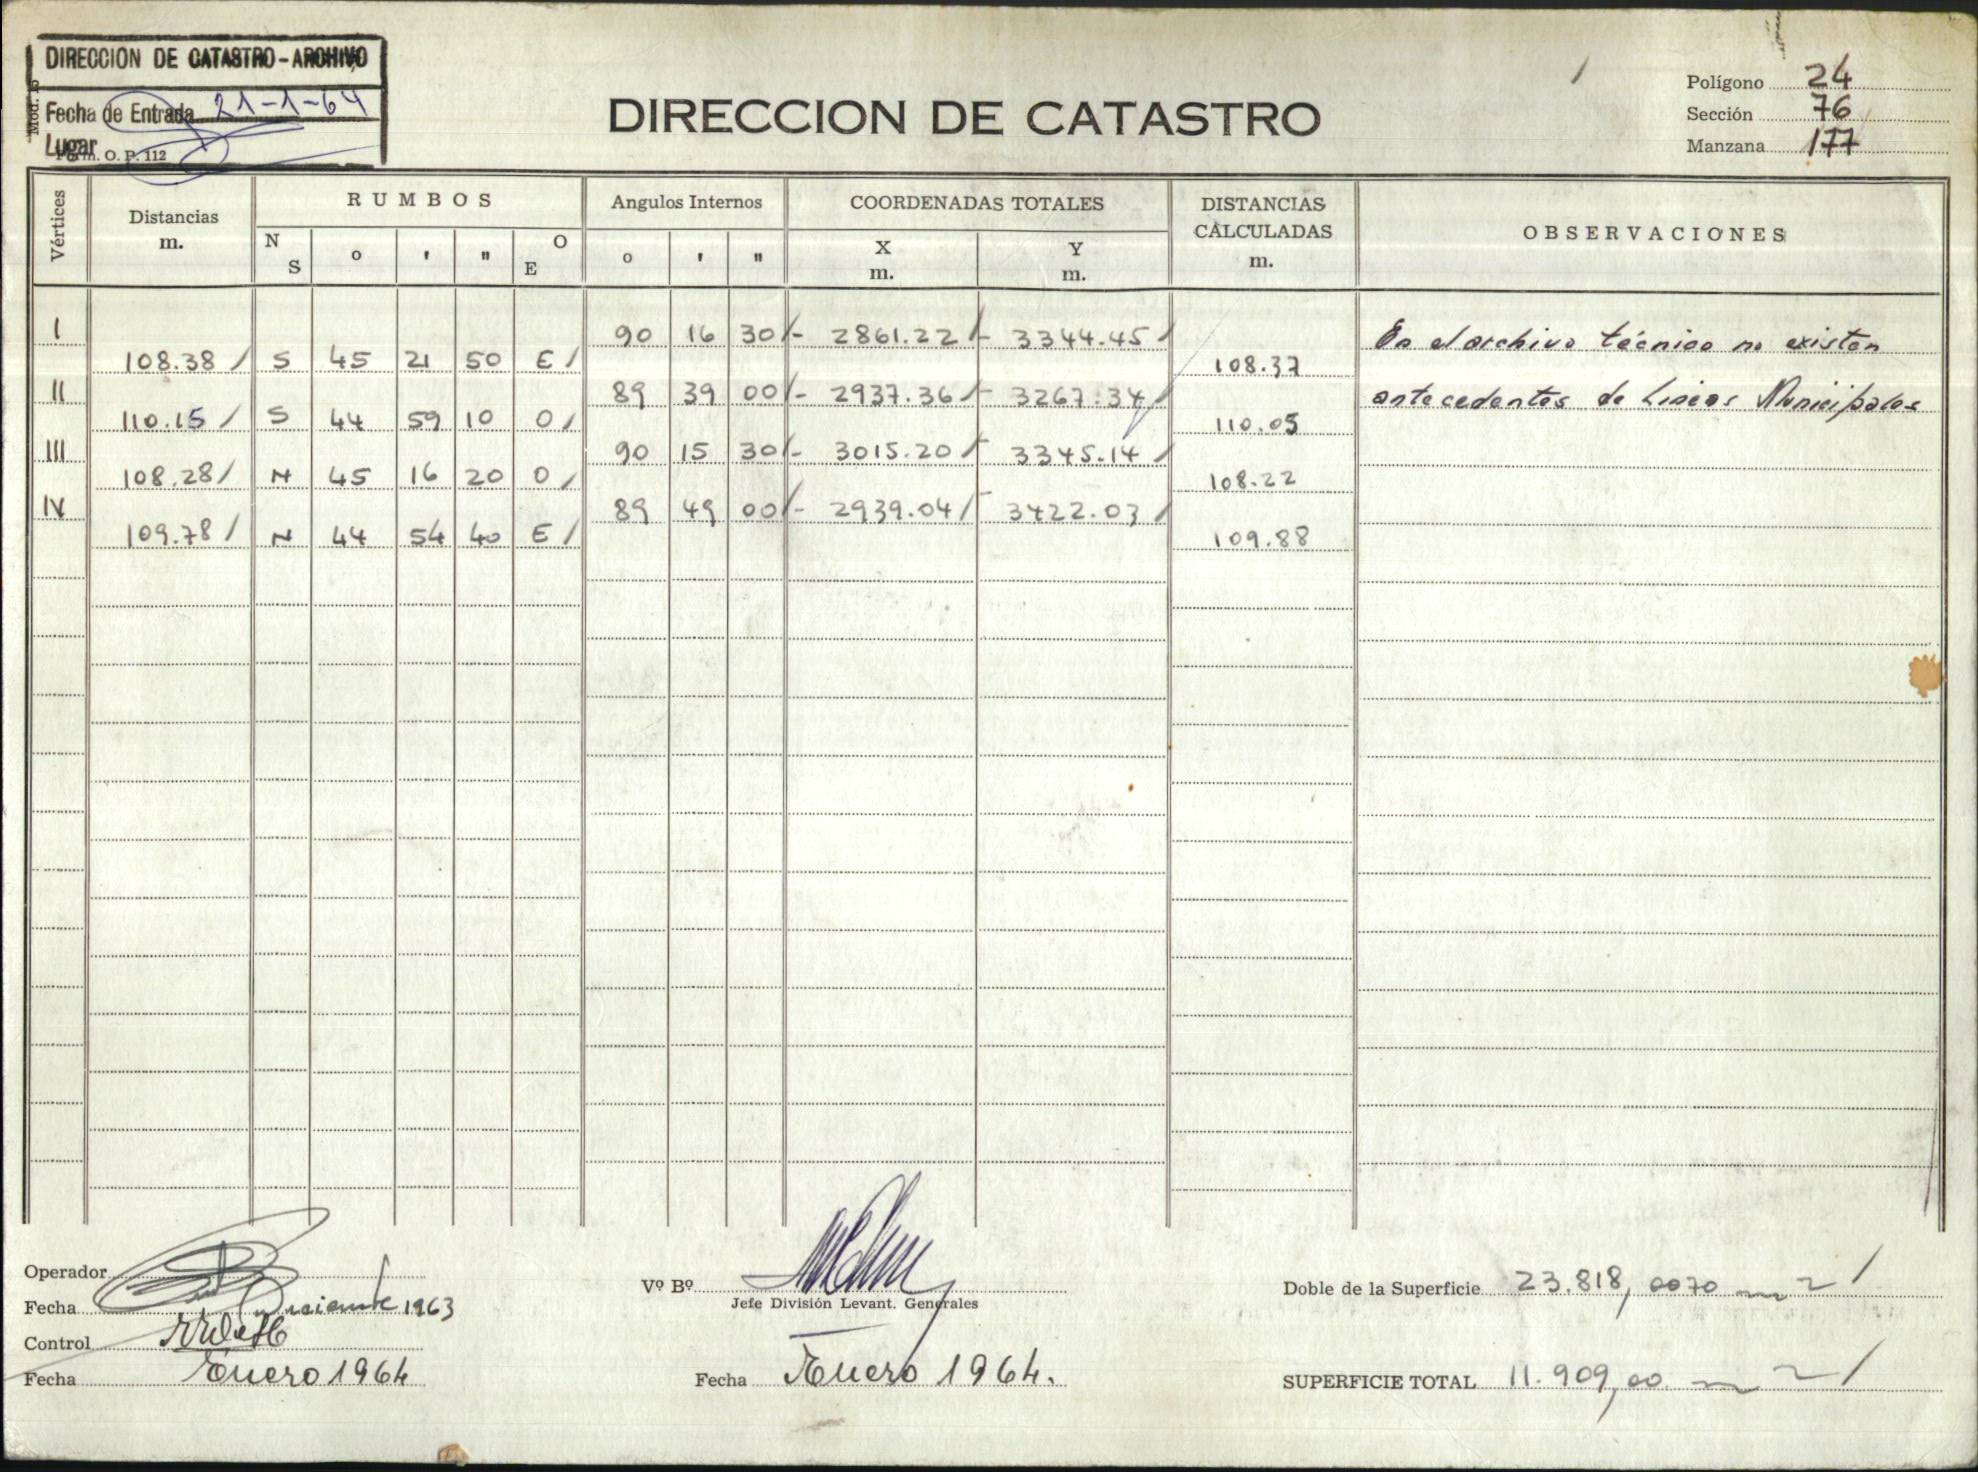 DIRECCION DE CATASTRO - ARCHIVO
Fecha de Entrada 21-1-64
Lugar
Form. O. P. 112
Mod. 15
DIRECCION DE CATASTRO
Polígono 24
Sección 76
Manzana 177
Vértices
Distancias m.
RUMBOS
N S o ' " O E
Angulos Internos
o ' "
COORDENADAS TOTALES
X m. Y m.
DISTANCIAS CALCULADAS m.
OBSERVACIONES
I 90 16 30 - 2861.22 - 3344.45
108.38 S 45 21 50 E 108.37
II 89 39 00 - 2937.36 - 3267.34
110.15 S 44 59 10 O 110.05
III 90 15 30 - 3015.20 - 3345.14
108.28 N 45 16 20 O 108.22
IV 89 49 00 - 2939.04 - 3422.03
109.78 N 44 54 40 E 109.88
En el archivo técnico no existen
antecedentes de Lineas Municipales
Operador
Fecha Diciembre 1963
Control
Fecha Enero 1964
Vº Bº
Jefe División Levant. Generales
Fecha Enero 1964.
Doble de la Superficie 23.818,0070 m2
SUPERFICIE TOTAL 11.909,00 m2